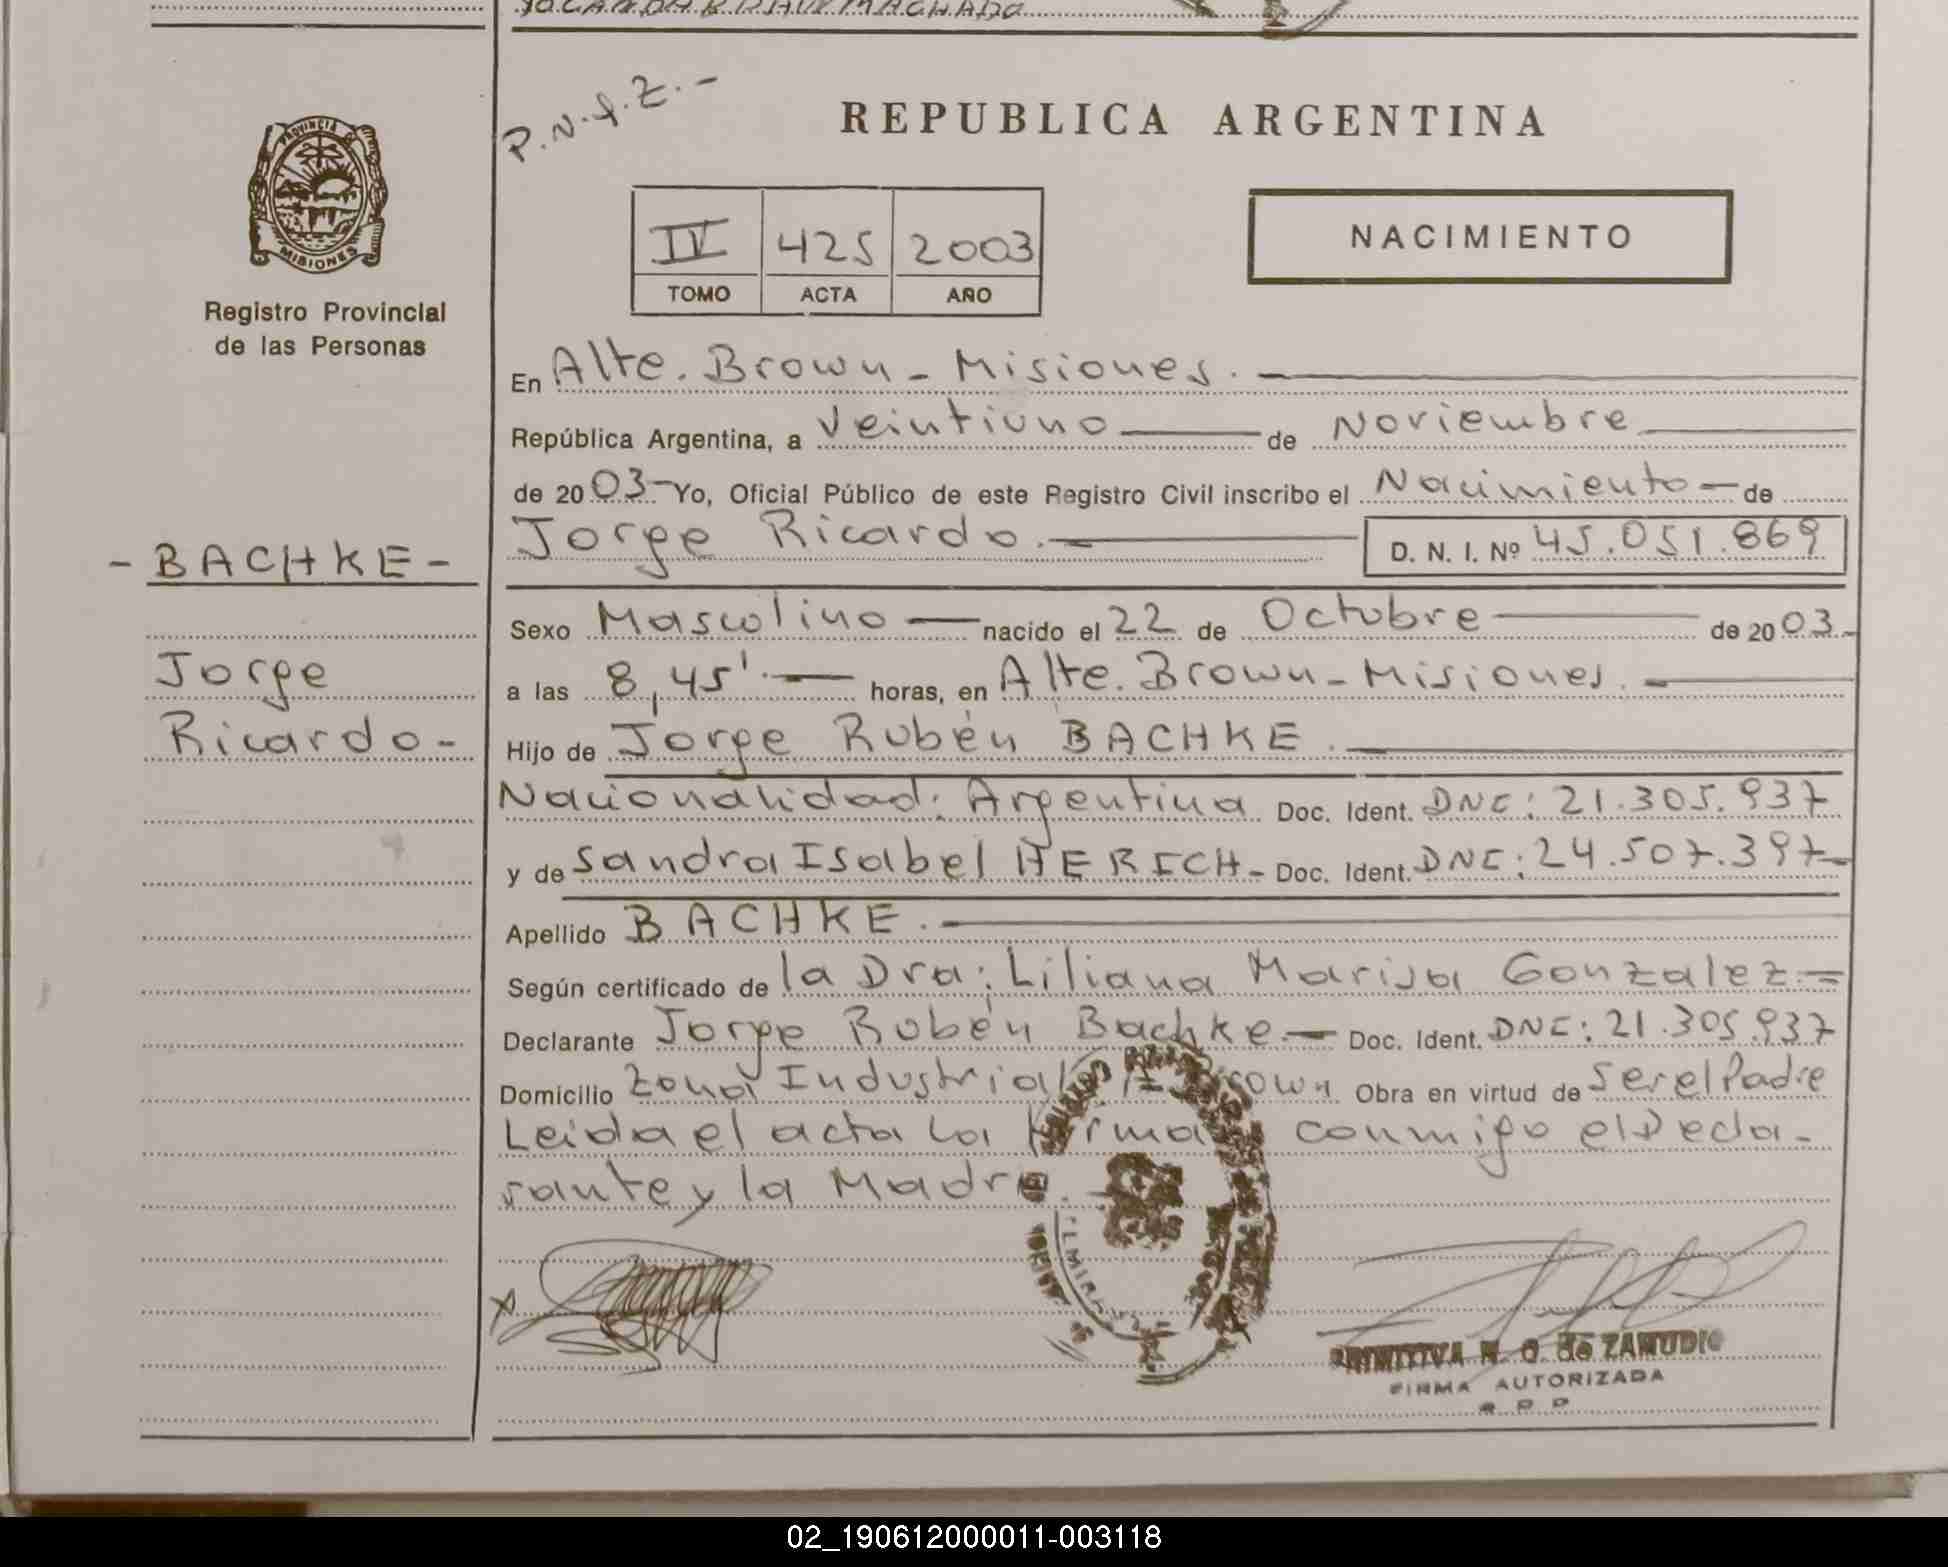 YOLANDA RAUL MACHADO
P.N.I.Z.-
REPUBLICA ARGENTINA
PROVINCIA DE
MISIONES
Registro Provincial
de las Personas
IV 425 2003
TOMO ACTA AÑO
NACIMIENTO
En Alte. Brown - Misiones.
República Argentina, a Veintiuno de Noviembre
de 2003 Yo, Oficial Público de este Registro Civil inscribo el Nacimiento de
Jorge Ricardo. D. N. I. Nº 45.051.869
- BACHKE -
Jorge
Ricardo -
Sexo Masculino nacido el 22 de Octubre de 2003.-
a las 8,45'. horas, en Alte. Brown - Misiones.
Hijo de Jorge Rubén BACHKE.
Nacionalidad: Argentina Doc. Ident. DNI: 21.305.937
y de Sandra Isabel HERICH - Doc. Ident. DNI: 24.507.397-
Apellido BACHKE.
Según certificado de la Dra: Liliana Marisa Gonzalez.-
Declarante Jorge Rubén Bachke.- Doc. Ident. DNI: 21.305.937
Domicilio Zona Industrial Brown Obra en virtud de Ser el Padre
Leida el acta la firma conmigo el Decla-
rante y la Madre.
X
PRIMITIVA N. G. de ZAMUDIO
FIRMA AUTORIZADA
R P P
02_190612000011-003118